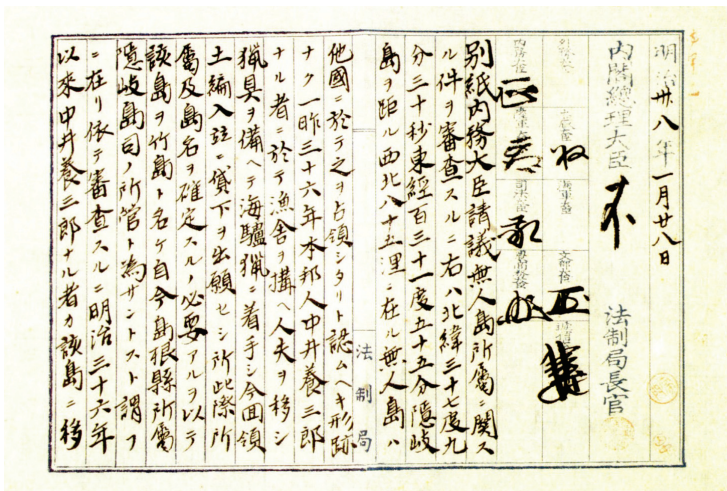 明治卅八年一月廿八日
内閣總理大臣
法制局長官
別紙内務大臣請議無人島所屬ニ関ス
ル件ヲ審査スルニ右ハ北緯三十七度九
分三十秒東経百三十一度五十五分隠岐
島ヲ距ル西北八十五浬ニ在ル無人島ハ
他國ニ於テ之ヲ占領シタリト認ムヘキ形跡
ナク一昨三十六年本邦人中井養三郎
ナル者ニ於テ漁舎ヲ構ヘ人夫ヲ移シ
猟具ヲ備ヘテ海驢猟ニ着手シ今回領
土編入並ニ貸下ヲ出願セシ所此際所
屬及島名ヲ確定スルノ必要アルヲ以テ
該島ヲ竹島ト名ケ自今島根縣所屬
隠岐島司ノ所管ト為サントスト謂フ
ニ在リ依テ審査スルニ明治三十六年
以来中井養三郎ナル者カ該島ニ移
法制局